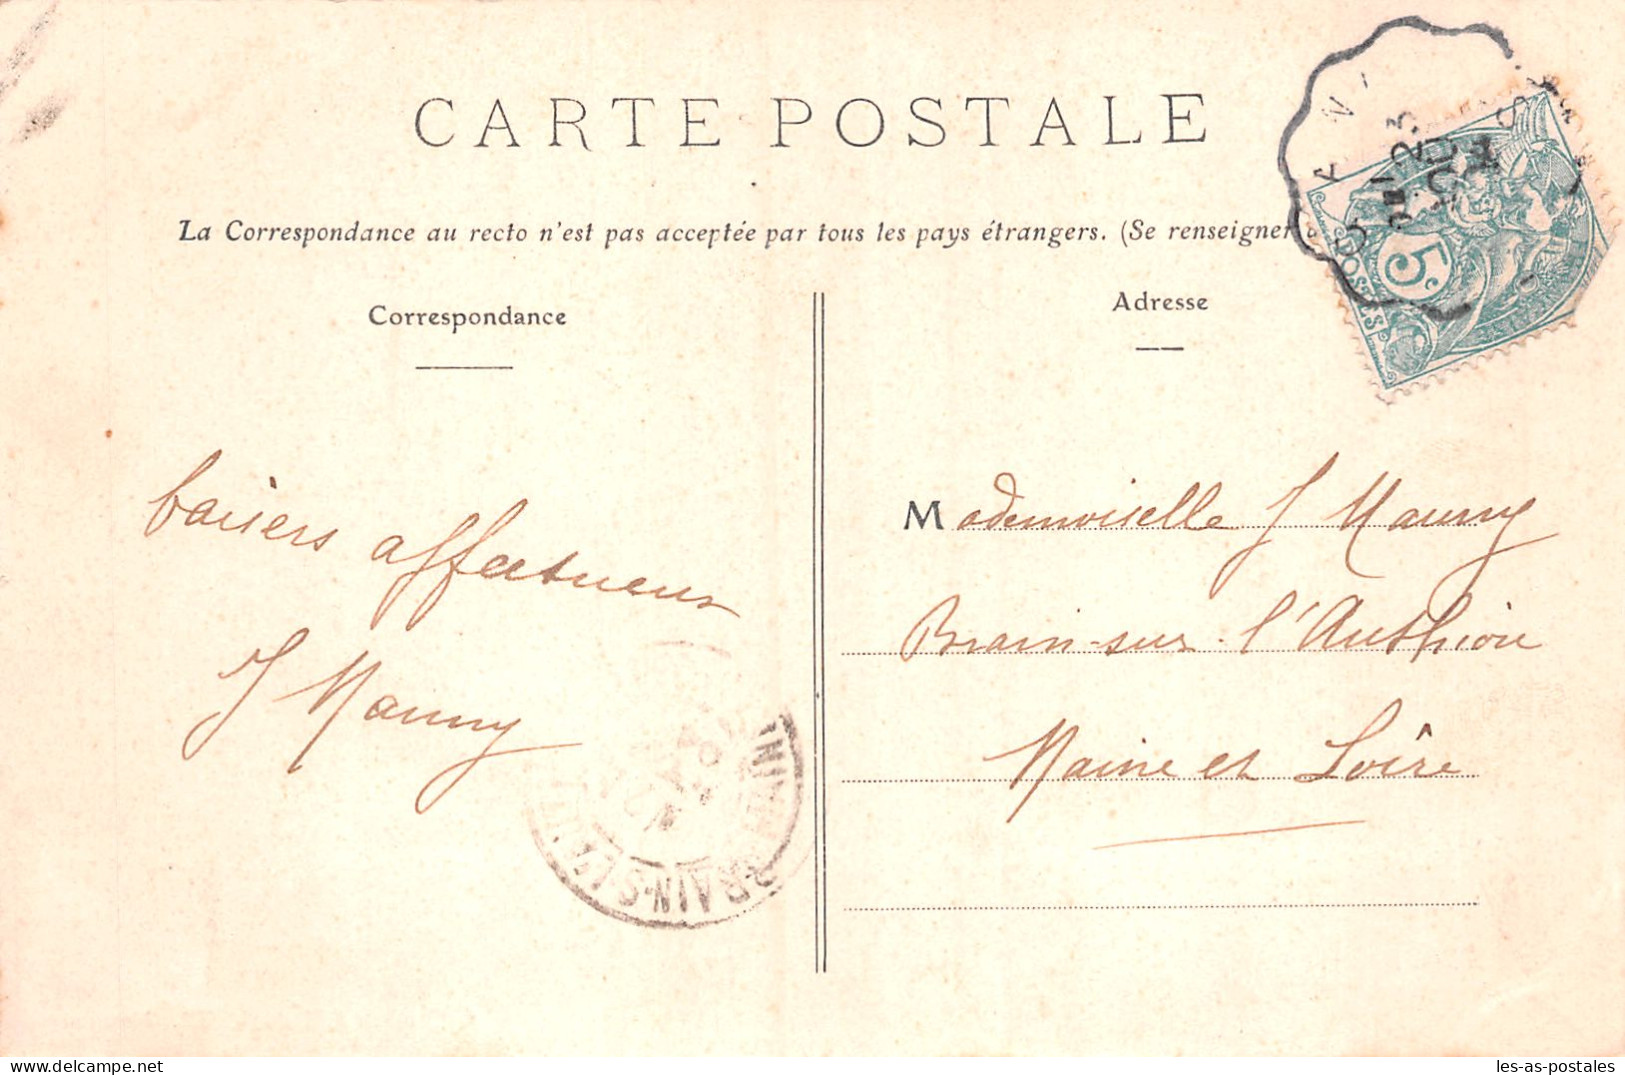 CARTE POSTALE
La Correspondance au recto n'est pas acceptée par tous les pays étrangers. (Se renseigner
Correspondance
Adresse
POSTES
5
baisers affectueux
J Mauny
Mademoiselle J Mauny
Brain-sur-l'Authion
Maine et Loire
BRAIN-S-L'AUT
les-as-postales